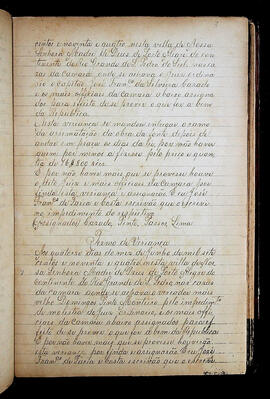 centos e noventa e quatro nesta villa de Nossa
Senhora Madre de Deus de Porto Alegre de con-
tinente do Rio Grande de S. Pedro, nas ca-
sas da Camara, onde se achava o Juis ordina-
rio o capitão José Franco da Silveira Cazado
e os mais officiaes da Camara a baixo assigna
dos para effeito de se prover o que fos a bem
da Republica.
Nesta vereança se mandou entregar o ramo
da arrematação da obra da fonte depois de
andar em praça os dias da lei por não haver
quem por menos a fizesse pelo preço e quan-
tia de 76$800 réis.
E por não haver mais que se provesse houve
o dito Juis e mais officiaes da Camara por
finda esta vereança e assignarão. E eu José
Franco de Faria e Costa escrivão que o escrevi
no impedimento do respectivo
(Assignados) Cazado, Pinto, Passos, Lima.
Termo de Vereança
Aos quatorze dias do mez de Junho de mil sete
centos e noventa e quatro nesta villa de Nos-
sa Senhora Madre de Deus de Porto Alegre do
continente do Rio Grande de S. Pedro, nas casas
da Camara donde se achava o vereador mais
velho Domingos Pinto Monteiro, pelo impedimento
de molestia do Juis ordinario, e os mais offi-
ciaes da Camara abaixo assignados para ef-
feito de se prover o que for a bem da Republica
E por não haver mais que se provesse houverão
esta vereança por finda e assignarão. E eu José
Franco de Faria e Costa escrivão que o escrevi